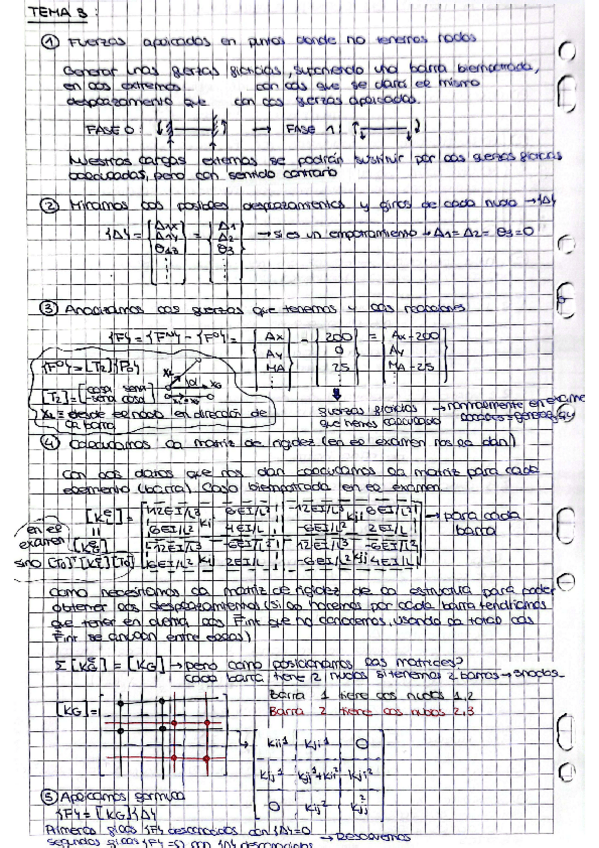 TEMA 3:
① Fuerzas aplicadas en puntos donde no tenemos nodos
Generar unas fuerzas ficticias, suponiendo una barra biempotrada,
en los extremos con las que se dará el mismo
desplazamiento que con las fuerzas aplicadas.
FASE 0: → FASE 1:
Nuestras cargas externas se podrán sustituir por las fuerzas ficticias
calculadas, pero con sentido contrario
② Miramos los posibles desplazamientos y giros de cada nudo → {Δ}
{Δ} = [Δ1x Δ1y θ1z ⋮] = [Δ1 Δ2 θ3 ⋮] → si es un empotramiento → Δ1 = Δ2 = θ3 = 0
③ Analizamos las fuerzas que tenemos y las reacciones
{F} = {F^N} - {F^0} = [Ax Ay MA ⋮] - [200 0 25 ⋮] = [Ax-200 Ay MA-25 ⋮]
{F^0} = [T2]{P0}
[T2] = [cosα senα -senα cosα]
XL = desde el nodo en dirección de
la barra
fuerzas ficticias → normalmente en examen
que hemos calculado
④ Calculamos la matriz de rigidez (en el examen nos la dan)
Con los datos que nos dan calculamos la matriz para cada
elemento (barra) Caso biempotrada en el examen
[K] = [12EI/L³ 6EI/L² -12EI/L³ 6EI/L² → para cada
6EI/L² Kii 4EI/L -6EI/L² 2EI/L barra
-12EI/L³ -6EI/L² 12EI/L³ -6EI/L²
-6EI/L² Kij 2EI/L -6EI/L² Kjj 4EI/L]
en el
examen
sino [T0]ᵀ[K][T0]
Como necesitamos la matriz de rigidez de la estructura para poder
obtener los desplazamientos (si lo hacemos por cada barra tendríamos
que tener en cuenta las Fint que no conocemos, usando la total las
Fint se anulan entre ellas)
Σ[K] = [KG] → pero como posicionamos las matrices?
cada barra tiene 2 nudos si tenemos 2 barras → 3 nudos
Barra 1 tiene los nudos 1,2
[KG] = Barra 2 tiene los nudos 2,3
Kii¹ Kji¹ 0
Kij¹ Kjj¹+Kii² Kji²
0 Kij² Kjj²
⑤ Aplicamos formula
{F} = [KG]{Δ}
Primeras filas {F} desconocidos con {Δ}=0 → Resolvemos
segundas filas {F} con {Δ} desconocidos